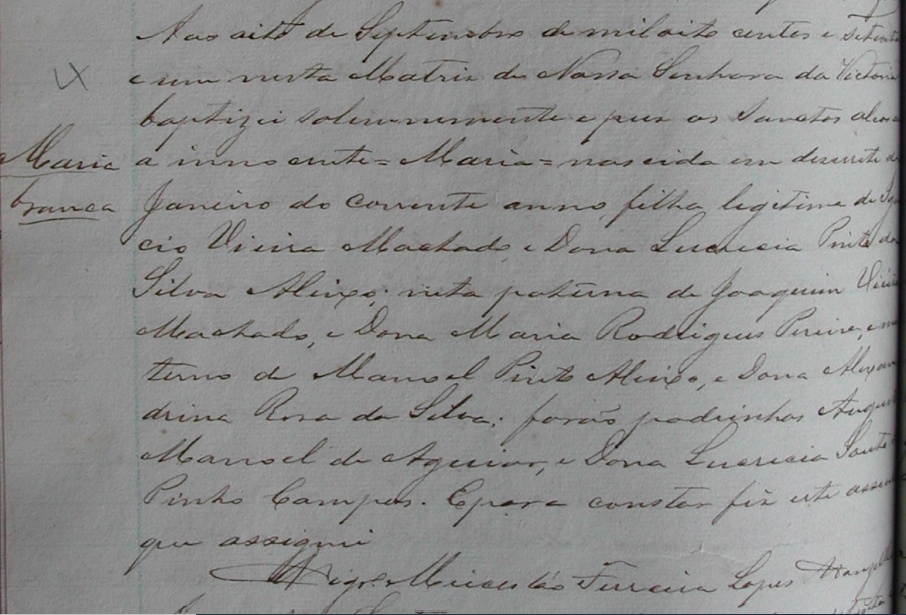 Aos oito de Septembro de mil oito centos e setenta
e um nesta Matriz de Nossa Senhora da Victoria
baptizei solemnemente e puz os Sanctos oleos
Maria
a innocente = Maria = nascida em desesete de
branca
Janeiro do corrente anno, filha legitima de
cio Vieira Machado, e Dona Lucrecia Pinto da
Silva Aleixo; neta paterna de Joaquim Vieira
Machado, e Dona Maria Rodrigues Pereira, e ma
terno de Manoel Pinto Aleixo, e Dona Alexan
drina Rosa da Silva: forão padrinhos
Manoel de Aguiar, e Dona Lucrecia
Pinho Campos. E para constar fiz este assen
que assignei
Ferreira Lopes